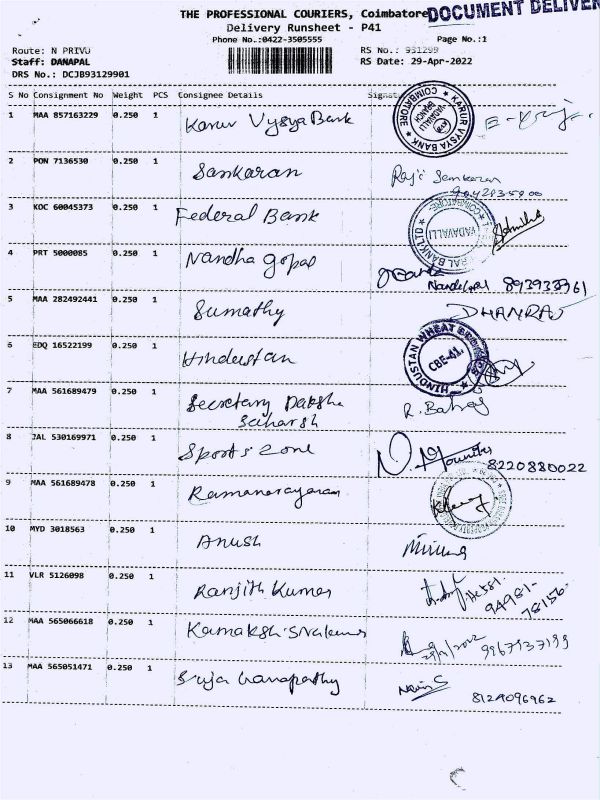 THE PROFESSIONAL COURIERS, Coimbatore
DOCUMENT DELIVER
Delivery Runsheet - P41
Phone No.:0422-3505555
Page No.:1
Route: N PRIVU
RS No.: 931299
Staff: DANAPAL
RS Date: 29-Apr-2022
DRS No.: DCJB93129901
S No Consignment No Weight PCS Consignee Details Signature
1 MAA 857163229 0.250 1 Karur Vysya Bank
KARUR VYSYA BANK COIMBATORE VADAVALLI BRANCH
2 PON 7136530 0.250 1 Sankaran Raji Sankaran
3 KOC 60045373 0.250 1 Federal Bank
VADAVALLI
4 PRT 5000085 0.250 1 Nandha gopal
5 MAA 282492441 0.250 1 Sumathy DHANRAJ
6 EDQ 16522199 0.250 1 Hindustan
HINDUSTAN WHEAT CBE-41
7 MAA 561689479 0.250 1 Secretary Daksha
R. Balraj
8 JAL 530169971 0.250 1 Sports Zone
8220880022
9 MAA 561689478 0.250 1 Ramanarayanan
10 MYD 3018563 0.250 1 Anush
11 VLR 5126098 0.250 1 Ranjith Kumar
94981-
78156
12 MAA 565066618 0.250 1 Kamakshi Sivakumar
9967937199
13 MAA 565051471 0.250 1 Suja Ganapathy
8124096962